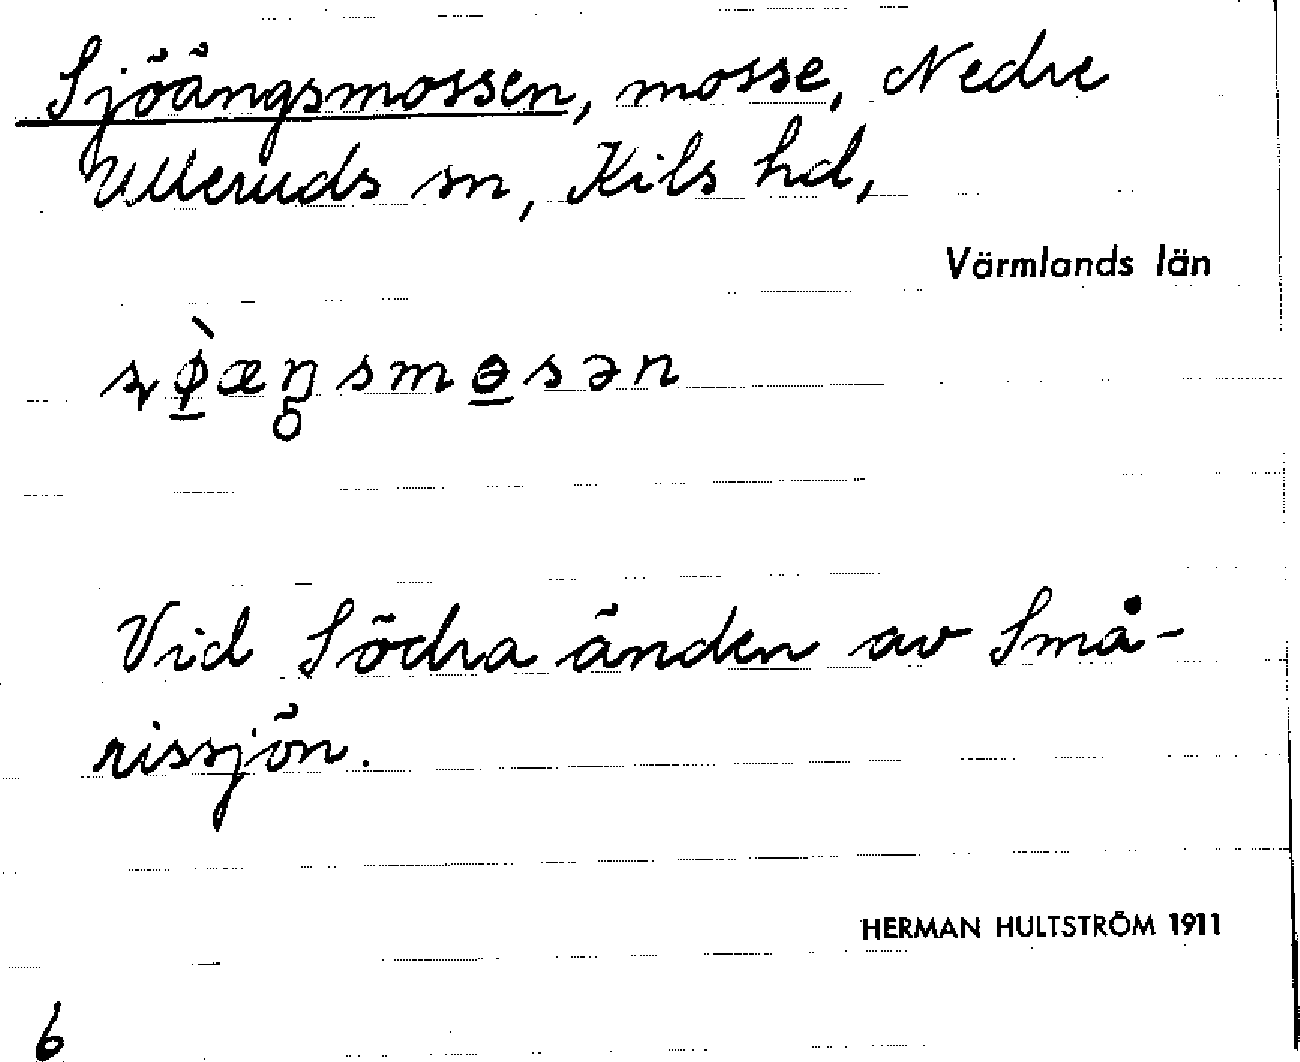 Sjöängsmossen, mosse, Nedre
Ulleruds sn, Kils hd,
Värmlands län
ʂø̠̀æŋ̥smɵ̠sən
Vid Södra änden av Små-
rissjön.
HERMAN HULTSTRÖM 1911
6